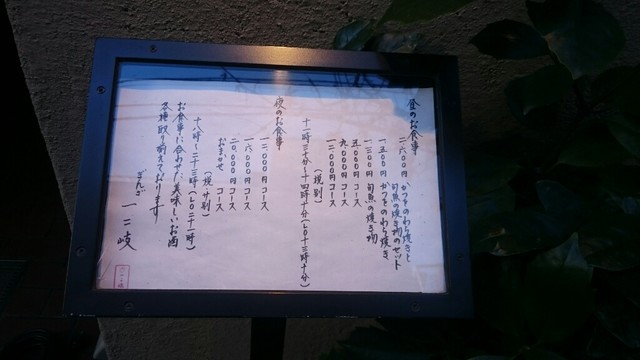 昼のお食事
二、六〇〇円 かつをのわら焼きと
旬魚の焼き物のセット
一、五〇〇円 かつをのわら焼き
一、三〇〇円 旬魚の焼き物
五、〇〇〇円 コース
九、〇〇〇円 コース
一二、〇〇〇円 コース
(税別)
十一時三十分〜十四時十分(LO十三時十分)
夜のお食事
一二、〇〇〇円 コース
一六、〇〇〇円 コース
二〇、〇〇〇円 コース
おまかせ コース
(税・別)
十八時〜二十三時(LO二十一時)
お食事に合わせた美味しいお酒
各種取り揃えております
ぎんざ 一二岐